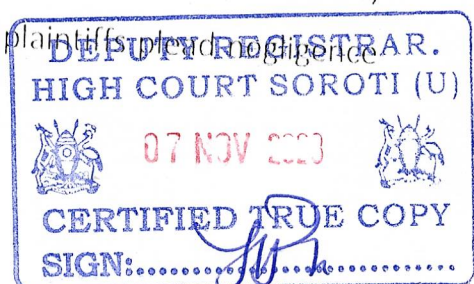 plaintiffs plead negligence
DEPUTY REGISTRAR.
HIGH COURT SOROTI (U)
07 NOV
CERTIFIED TRUE COPY
SIGN: